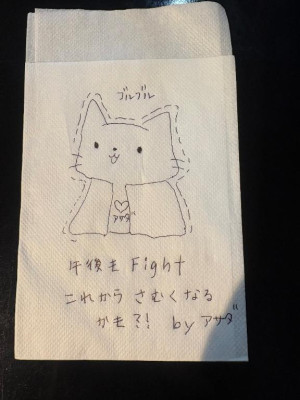 ブルブル
アサダ
午後も Fight
これから さむくなる
かも?! by アサダ